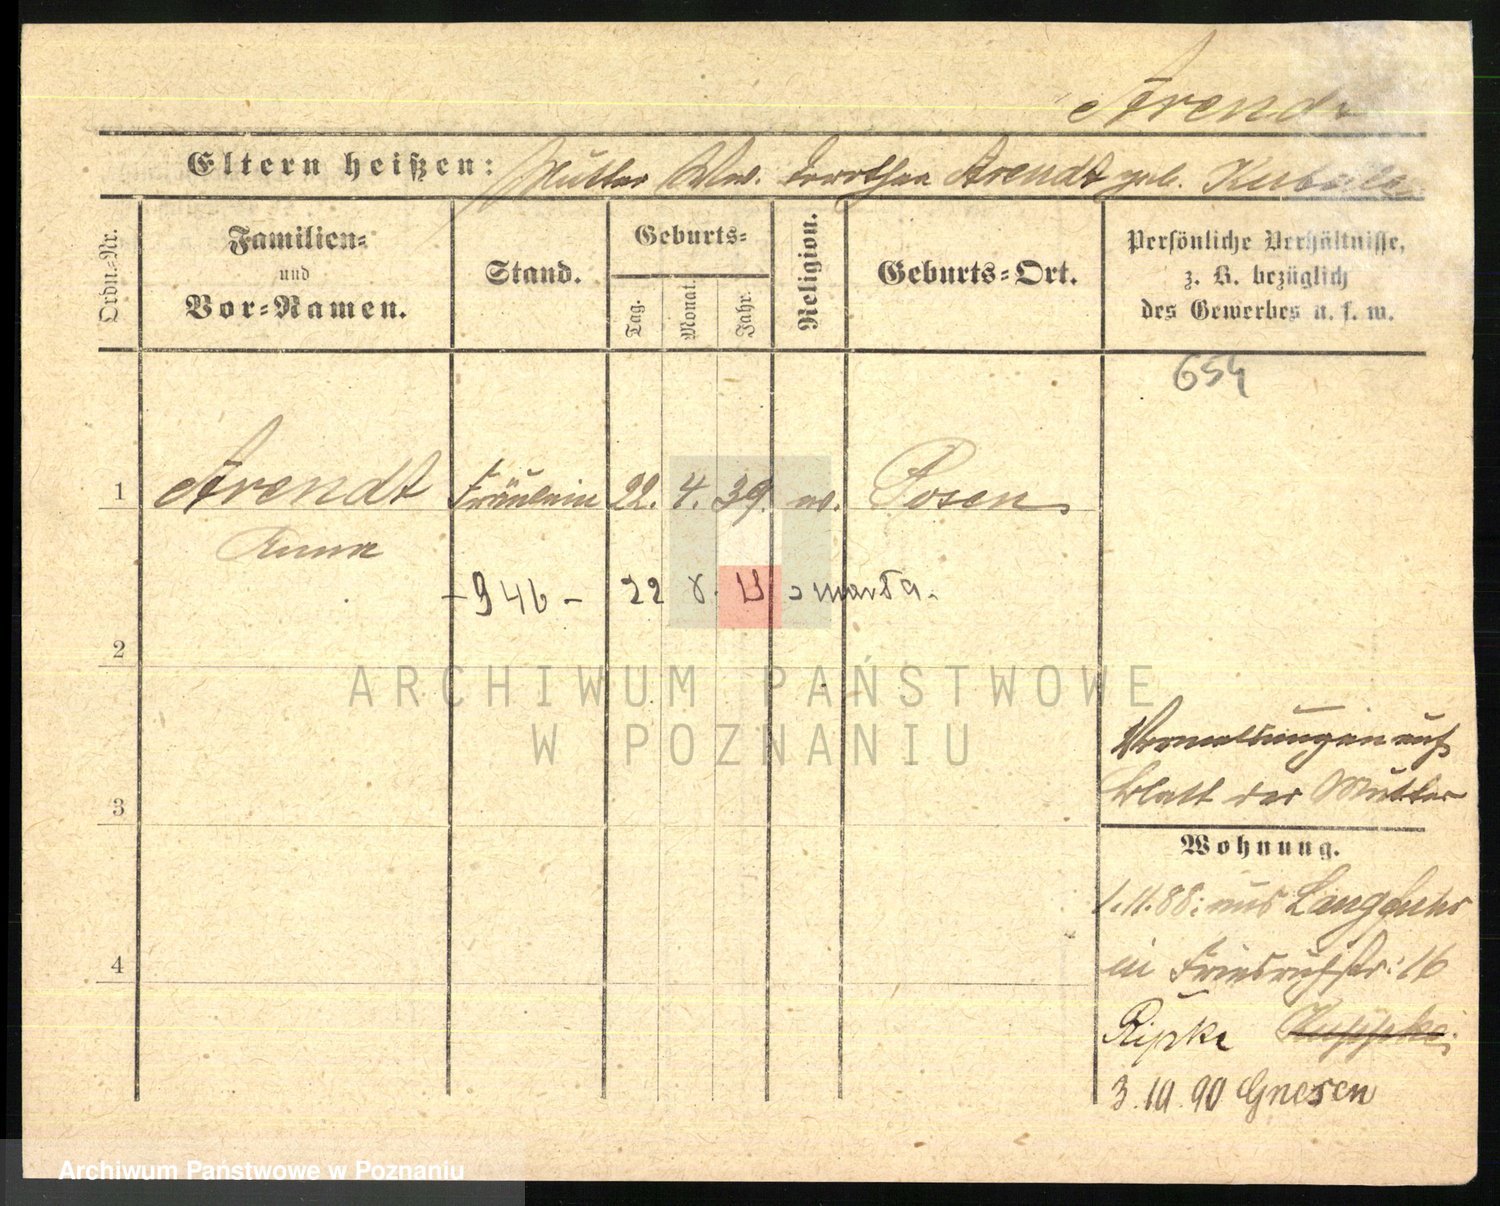 Arendt
Eltern heißen: Mutter Ww. Dorothea Arendt geb.
Ordn.-Nr.
Familien-
und
Vor-Namen.
Stand.
Geburts-
Tag.
Monat.
Jahr.
Religion.
Geburts-Ort.
Persönliche Verhältnisse,
z. B. bezüglich
des Gewerbes u. s. w.
654
1 Arendt Fräulein 22. 4. 39. ev. Posen
Anna
- 946 - 22 8. 13 zmarła.
2
ARCHIWUM PAŃSTWOWE
W POZNANIU
3
blatt der Mutter
Wohnung.
1.11.88: aus Langfuhr
4
in 16
Ripke
3.10.90 Gnesen
Archiwum Państwowe w Poznaniu